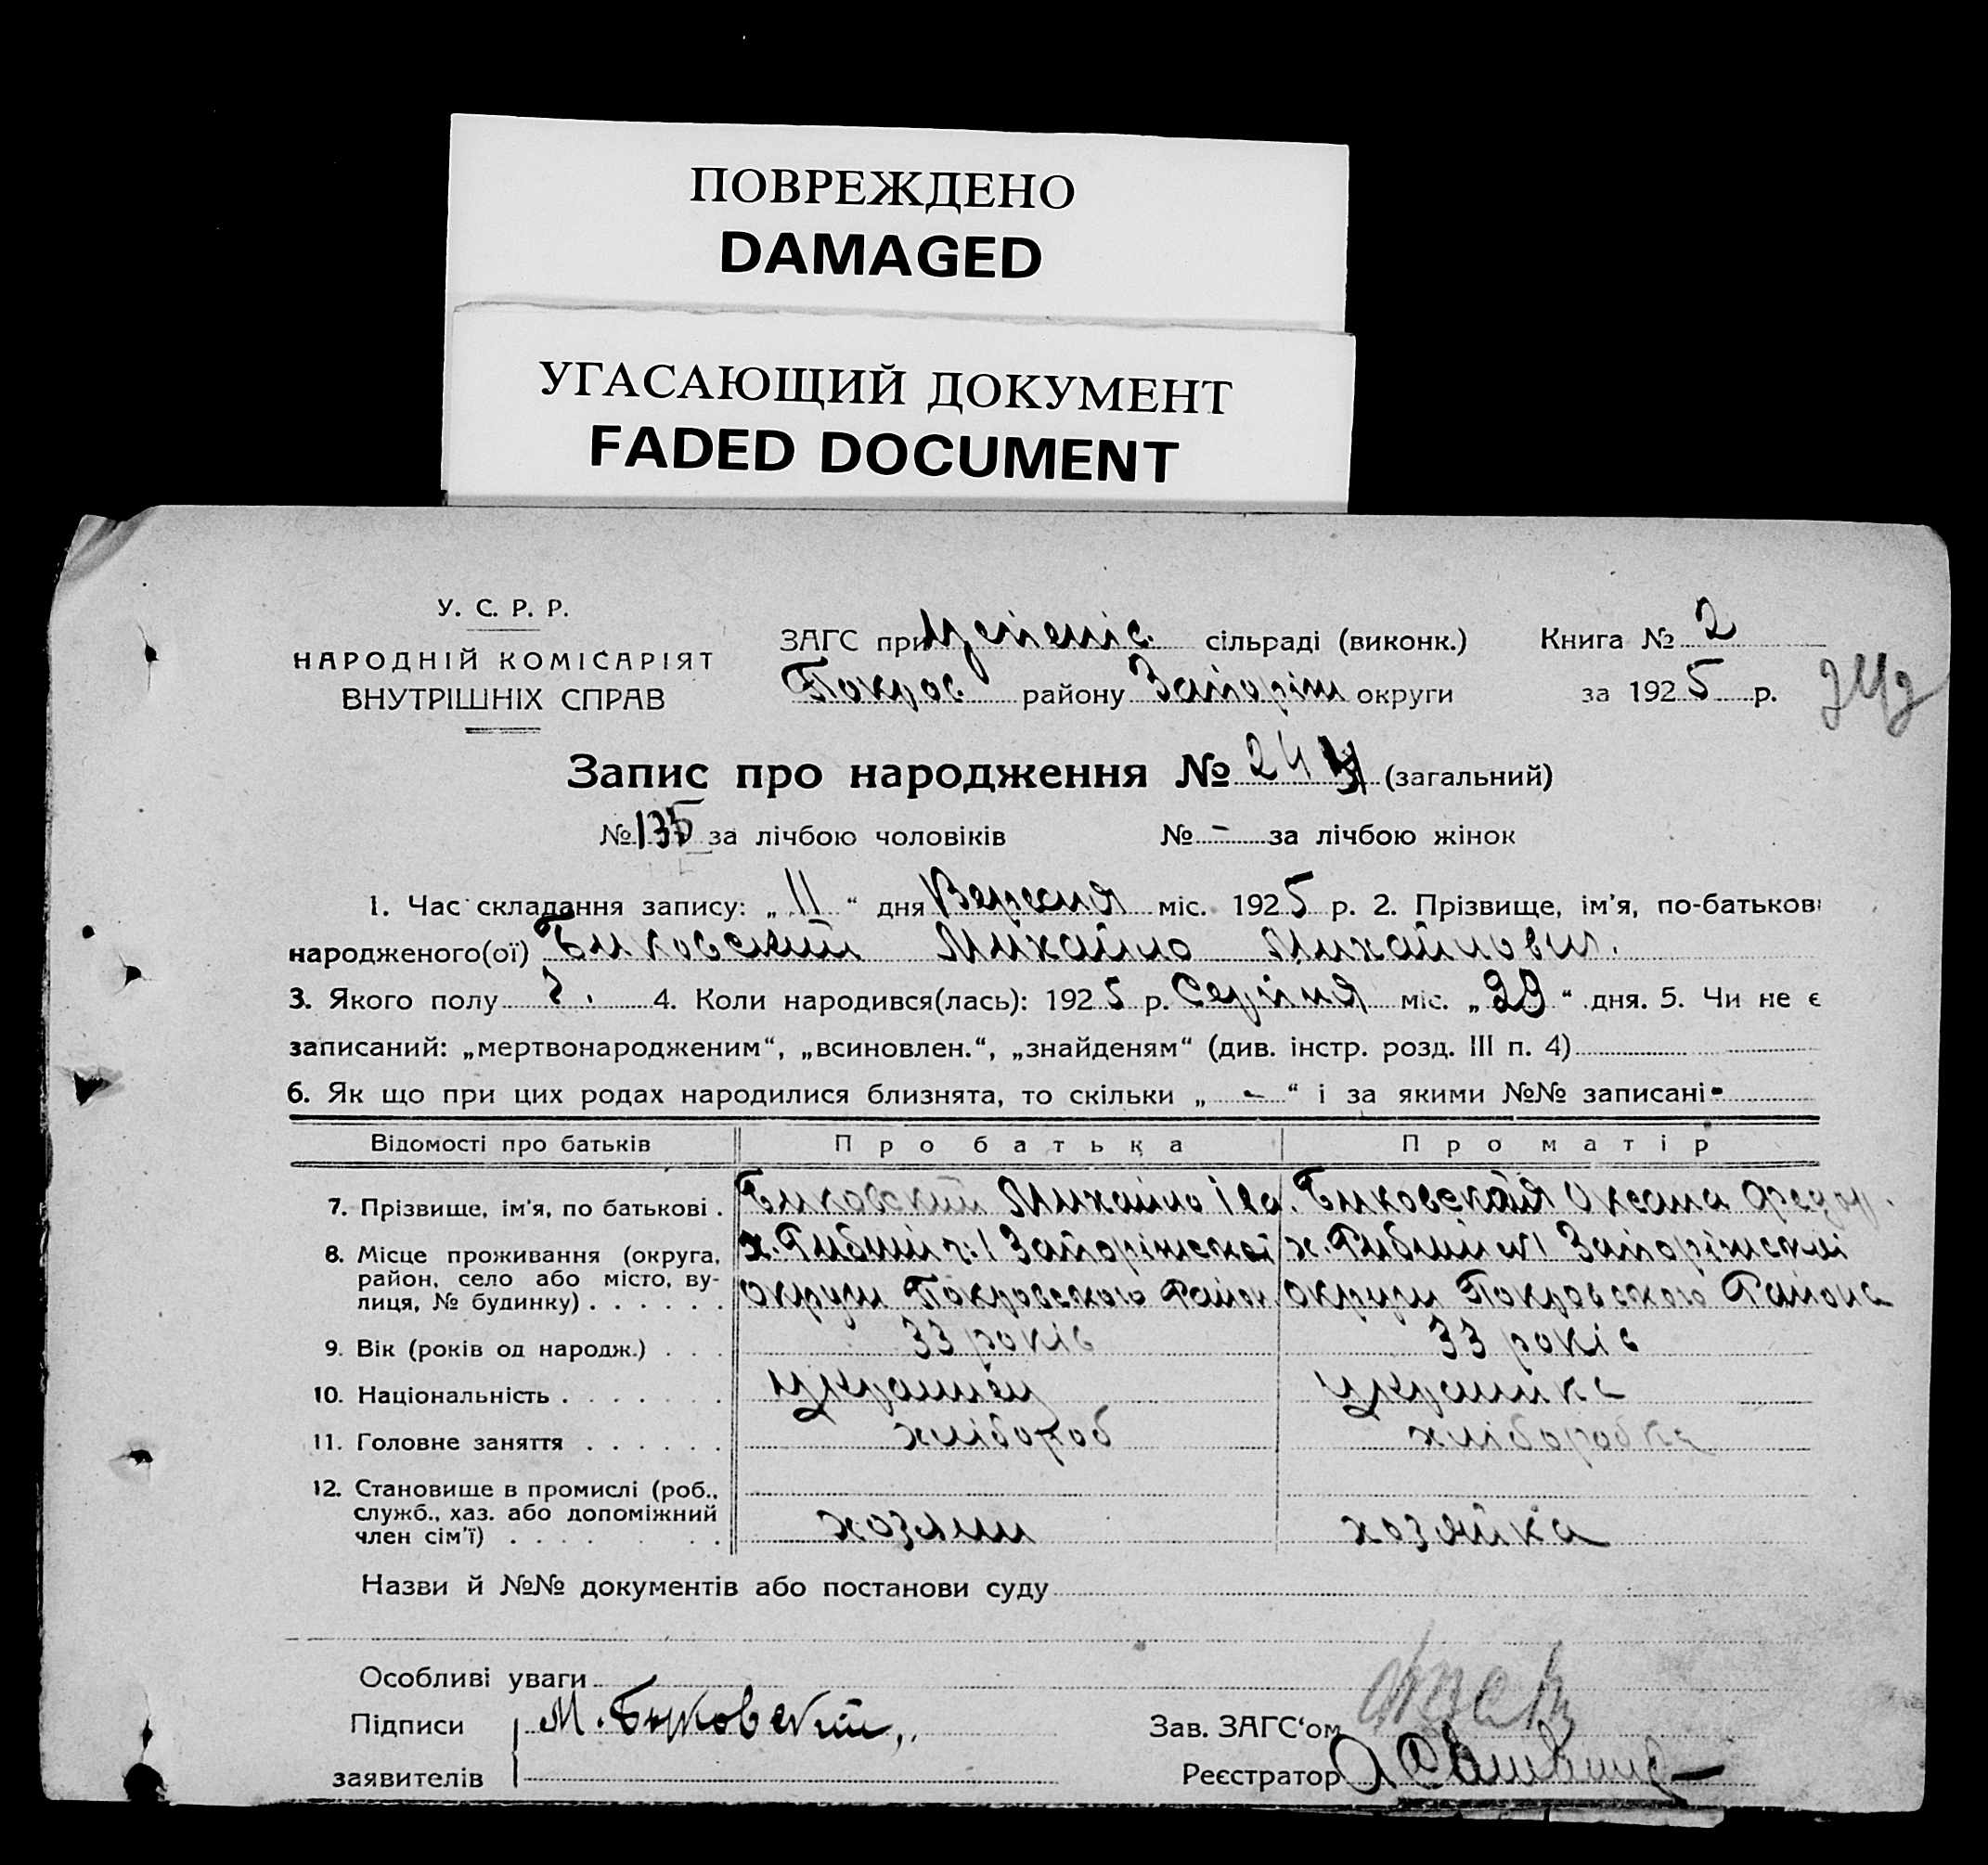 ПОВРЕЖДЕНО
DAMAGED
УГАСАЮЩИЙ ДОКУМЕНТ
FADED DOCUMENT
У. С. Р. Р.
НАРОДНІЙ КОМІСАРІЯТ
ВНУТРІШНІХ СПРАВ
ЗАГС при Успенів. сільраді (виконк.) Книга № 2
Покров району Запоріж округи за 1925 р.
Запис про народження № 24 (загальний)
№ 135 за лічбою чоловіків № - за лічбою жінок
1. Час складання запису: „ 11 “ дня Вересня міс. 1925 р. 2. Прізвище, ім'я, по-батькові
народженого(ої) Биковский Михайло Михайлович.
3. Якого полу ч. 4. Коли народився(лась): 1925 р. Серпня міс. „ 29 “ дня. 5. Чи не є
записаний: „мертвонародженим“, „всиновлен.“, „знайденям“ (див. інстр. розд. III п. 4)
6. Як що при цих родах народилися близнята, то скільки „ - “ і за якими №№ записані -
Відомості про батьків Про батька Про матір
7. Прізвище, ім'я, по батькові . Биковский Михайло Іва. Биковская Оксана Федор.
8. Місце проживання (округа, х. Рибний ч. 1 Запоріжскої х. Рибний №1 Запоріжскої
район, село або місто, ву-
лиця, № будинку) . . . . . . округи Покровского Район. округи Покровского Района
9. Вік (років од народж.) . . . 33 років 33 років
10. Національність . . . . . . . Українец Українка
11. Головне заняття . . . . . . хлібороб хлібородка
12. Становище в промислі (роб.,
служб., хаз. або допоміжний
член сім'ї) . . . . . . хозяин хозяйка
Назви й №№ документів або постанови суду
Особливі уваги
Підписи М. Биковский Зав. ЗАГС‘ом
заявителів Реєстратор